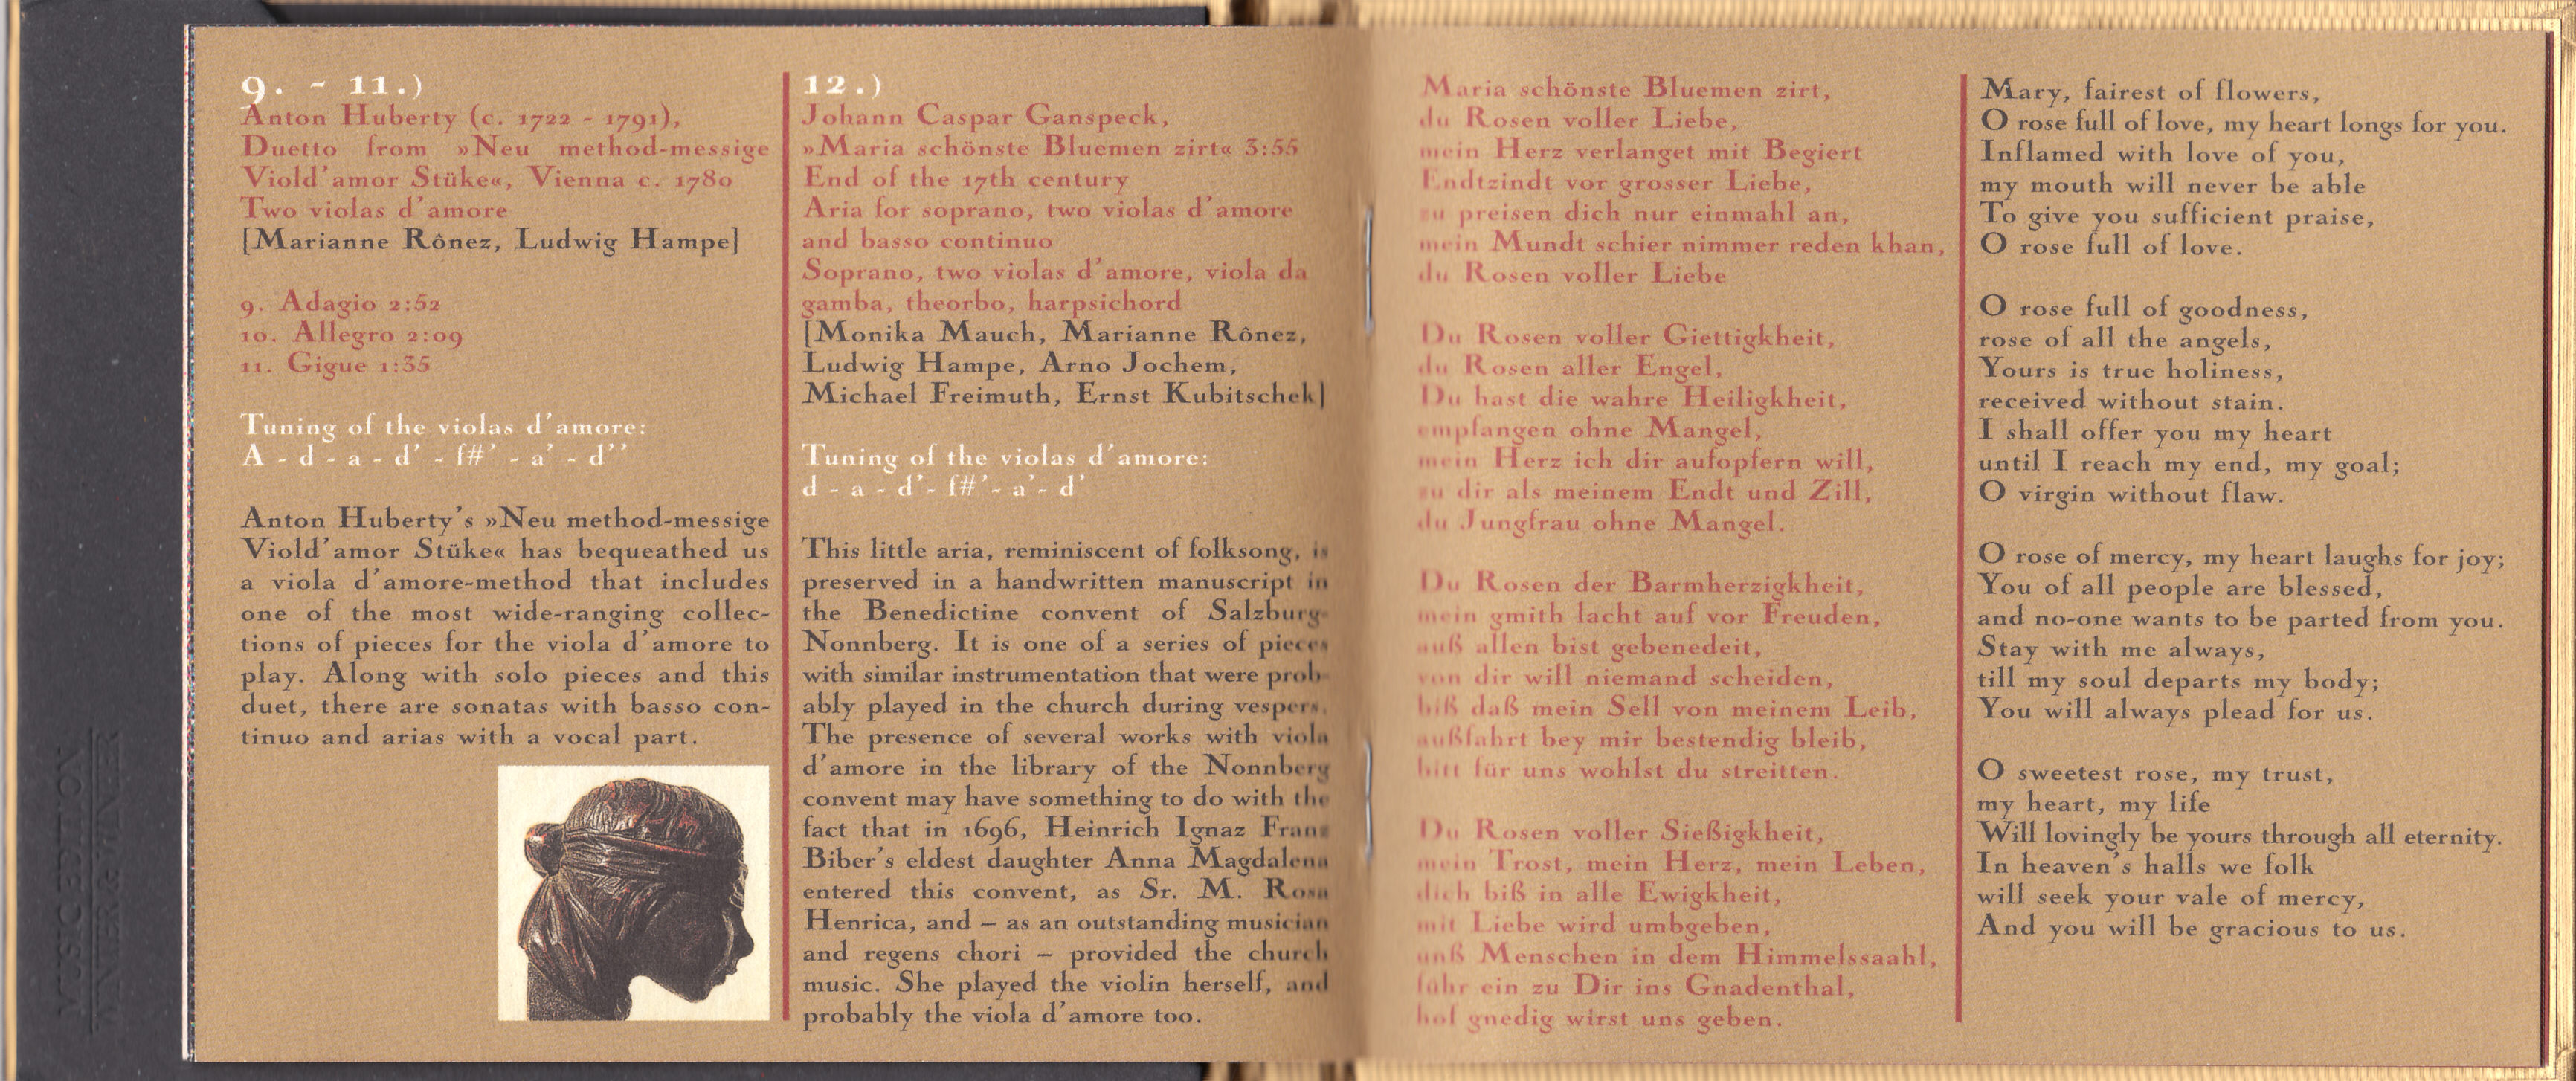 9. - 11.)
Anton Huberty (c. 1722 - 1791),
Duetto from »Neu method-messige
Viold'amor Stüke«, Vienna c. 1780
Two violas d'amore
[Marianne Rônez, Ludwig Hampe]
9. Adagio 2:52
10. Allegro 2:09
11. Gigue 1:35
Tuning of the violas d'amore:
A - d - a - d' - f#' - a' - d''
Anton Huberty's »Neu method-messige
Viold'amor Stüke« has bequeathed us
a viola d'amore-method that includes
one of the most wide-ranging collec-
tions of pieces for the viola d'amore to
play. Along with solo pieces and this
duet, there are sonatas with basso con-
tinuo and arias with a vocal part.
12.)
Johann Caspar Ganspeck,
»Maria schönste Bluemen zirt« 3:55
End of the 17th century
Aria for soprano, two violas d'amore
and basso continuo
Soprano, two violas d'amore, viola da
gamba, theorbo, harpsichord
[Monika Mauch, Marianne Rônez,
Ludwig Hampe, Arno Jochem,
Michael Freimuth, Ernst Kubitschek]
Tuning of the violas d'amore:
d - a - d'- f#'- a'- d'
This little aria, reminiscent of folksong, is
preserved in a handwritten manuscript in
the Benedictine convent of Salzburg-
Nonnberg. It is one of a series of pieces
with similar instrumentation that were prob-
ably played in the church during vespers.
The presence of several works with viola
d'amore in the library of the Nonnberg
convent may have something to do with the
fact that in 1696, Heinrich Ignaz Franz
Biber's eldest daughter Anna Magdalena
entered this convent, as Sr. M. Rosa
Henrica, and – as an outstanding musician
and regens chori – provided the church
music. She played the violin herself, and
probably the viola d'amore too.
Maria schönste Bluemen zirt,
du Rosen voller Liebe,
mein Herz verlanget mit Begiert
Endtzindt vor grosser Liebe,
zu preisen dich nur einmahl an,
mein Mundt schier nimmer reden khan,
du Rosen voller Liebe
Du Rosen voller Giettigkheit,
du Rosen aller Engel,
Du hast die wahre Heiligkheit,
empfangen ohne Mangel,
mein Herz ich dir aufopfern will,
zu dir als meinem Endt und Zill,
du Jungfrau ohne Mangel.
Du Rosen der Barmherzigkheit,
mein gmith lacht auf vor Freuden,
auß allen bist gebenedeit,
von dir will niemand scheiden,
biß daß mein Sell von meinem Leib,
außfahrt bey mir bestendig bleib,
bitt für uns wohlst du streitten.
Du Rosen voller Sießigkheit,
mein Trost, mein Herz, mein Leben,
dich biß in alle Ewigkheit,
mit Liebe wird umbgeben,
unß Menschen in dem Himmelssaahl,
führ ein zu Dir ins Gnadenthal,
hof gnedig wirst uns geben.
Mary, fairest of flowers,
O rose full of love, my heart longs for you.
Inflamed with love of you,
my mouth will never be able
To give you sufficient praise,
O rose full of love.
O rose full of goodness,
rose of all the angels,
Yours is true holiness,
received without stain.
I shall offer you my heart
until I reach my end, my goal;
O virgin without flaw.
O rose of mercy, my heart laughs for joy;
You of all people are blessed,
and no-one wants to be parted from you.
Stay with me always,
till my soul departs my body;
You will always plead for us.
O sweetest rose, my trust,
my heart, my life
Will lovingly be yours through all eternity.
In heaven's halls we folk
will seek your vale of mercy,
And you will be gracious to us.
MUSIC EDITION
WINTER & WINTER